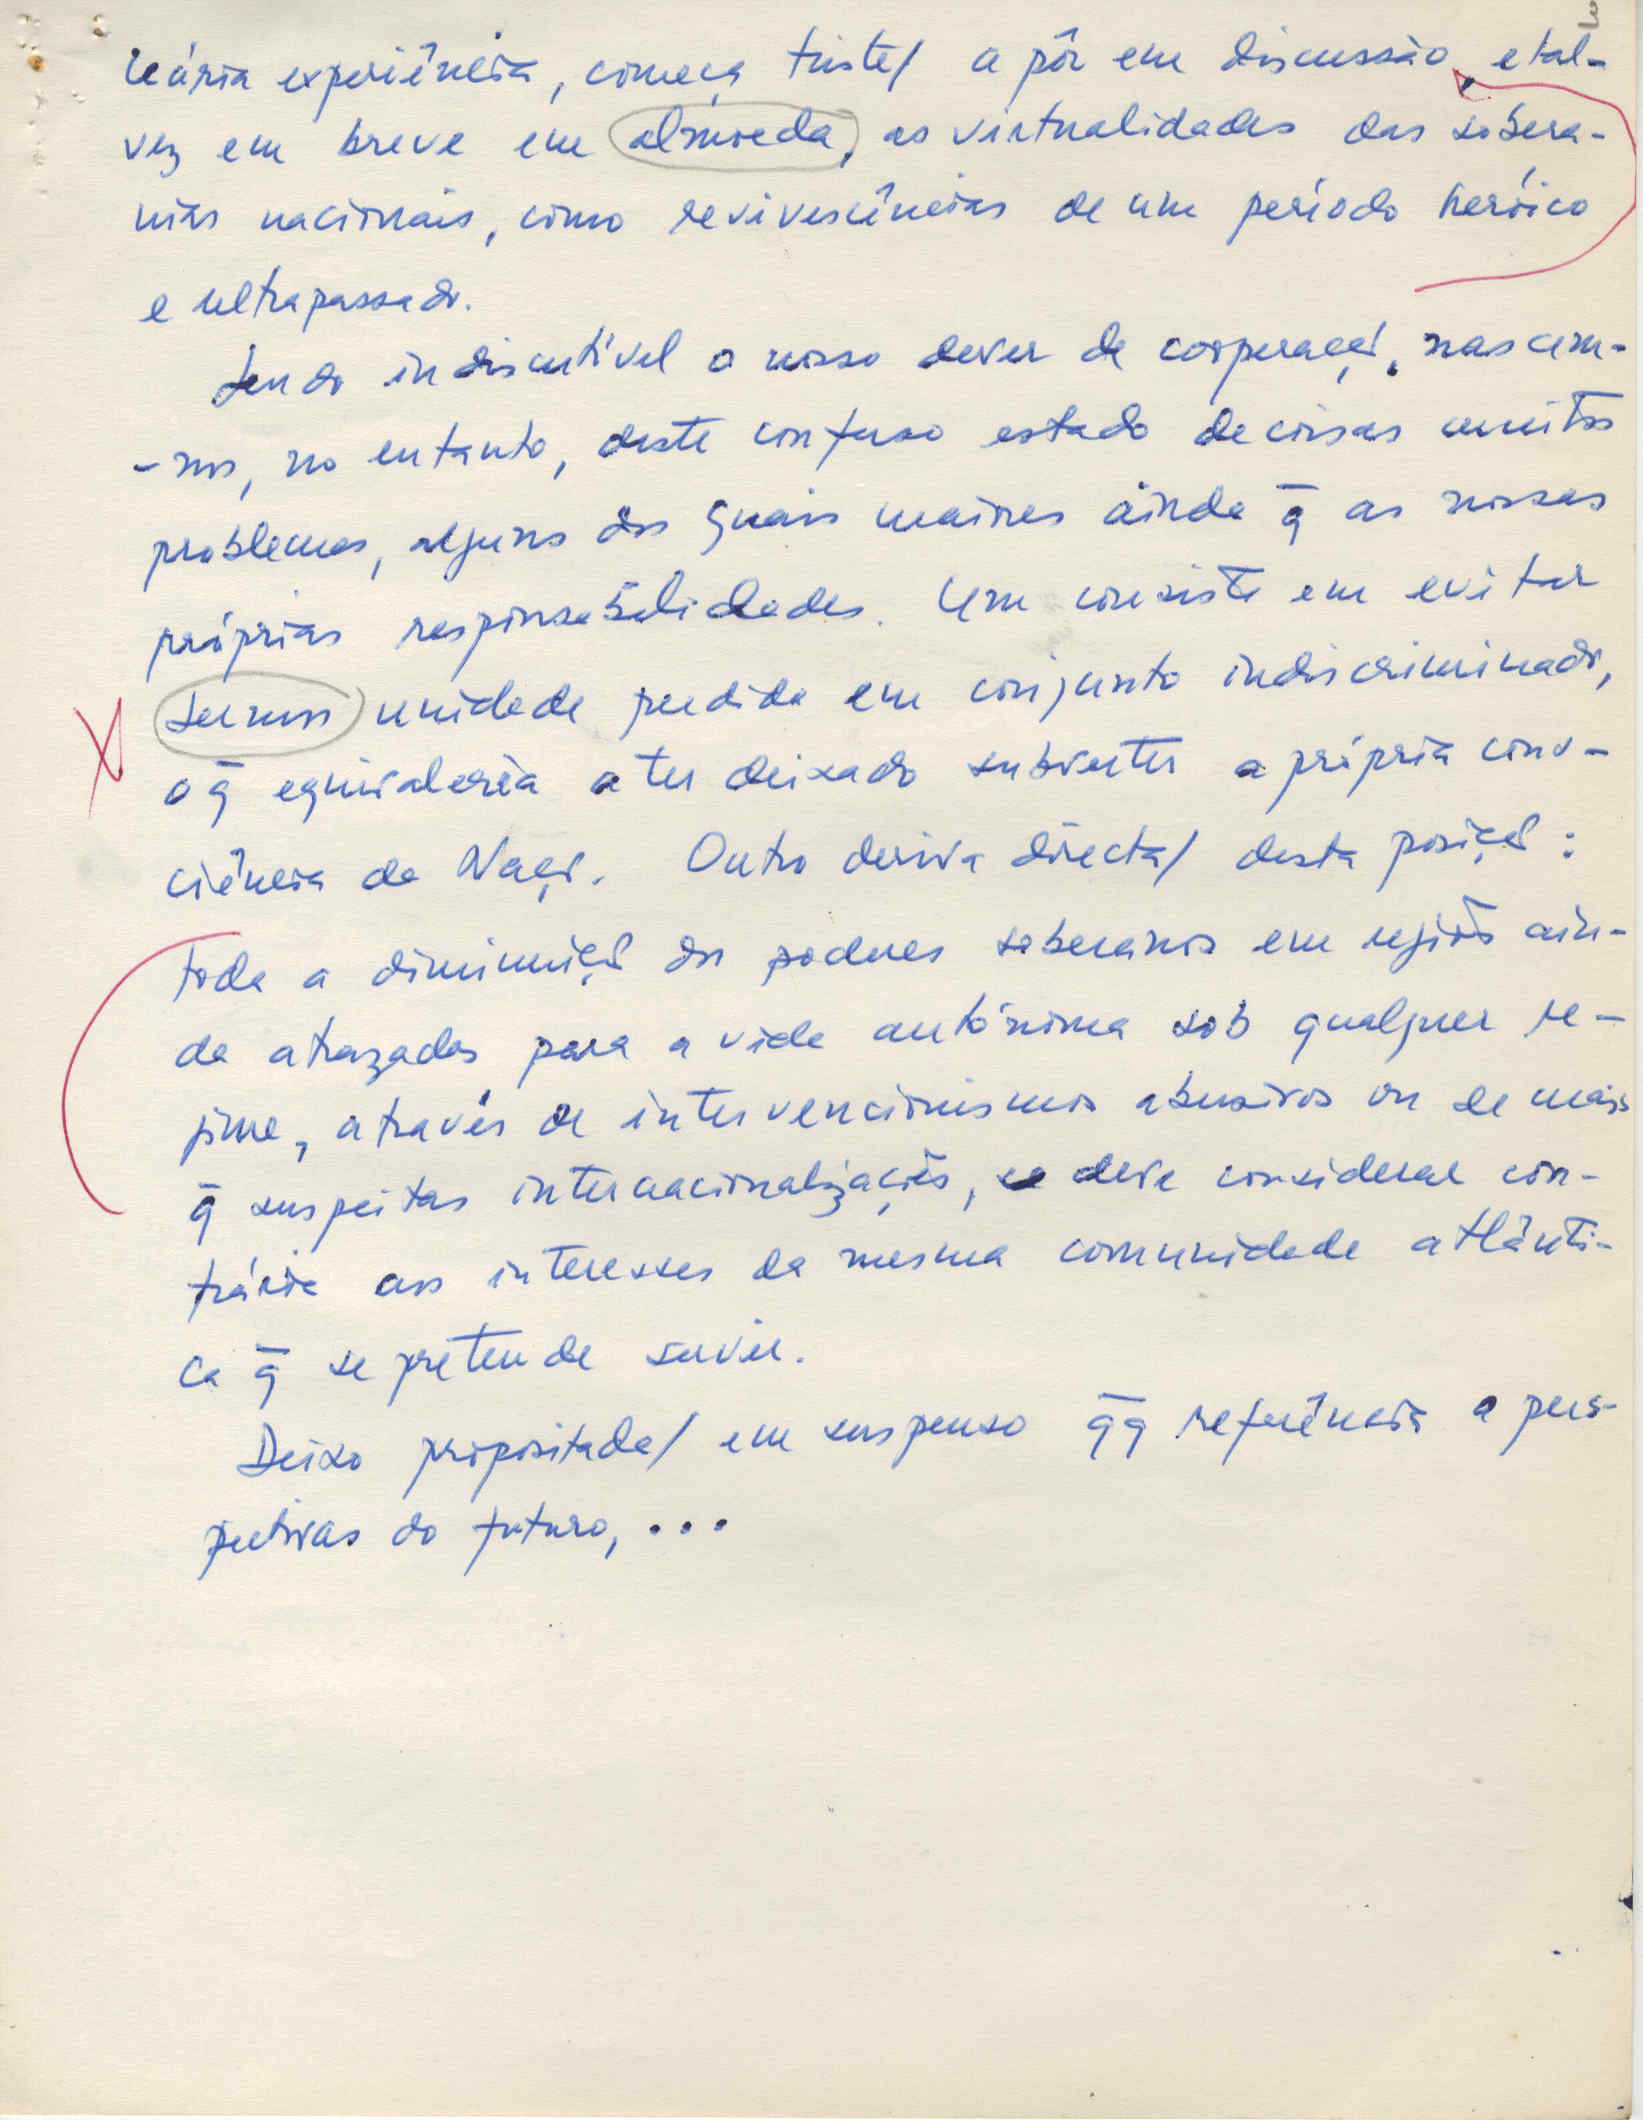 nária experiência, começa triste/ a pôr em discussão, e tal-
vez em breve em almoeda, as virtualidades das sobera-
nias nacionais, como revivescências de um período heróico
e ultrapassado.
Sendo indiscutível o nosso dever de cooperaçã, nascem-
-nos, no entanto, deste confuso estado de coisas muitos
problemas, alguns dos quais maiores àinda q̄ as nossas
próprias responsabilidades. Um consiste em evitar
sermos unidade perdida em conjunto indiscriminado,
o q̄ equivaleria a ter deixado subverter a própria cons-
ciência da Naçã. Outro deriva directa/ desta posiçã:
toda a diminuiçã dos poderes soberanos em regiões ain-
da atrazadas para a vida autónoma sob qualquer re-
gime, através de intervencionismos abusivos ou de mais
q̄ suspeitas internacionalizações, se deve considerar con-
trária aos interesses da mesma comunidade atlânti-
ca q̄ se pretende servir.
Deixo propositada/ em suspenso q̄q referência a pers-
pectivas do futuro, ...